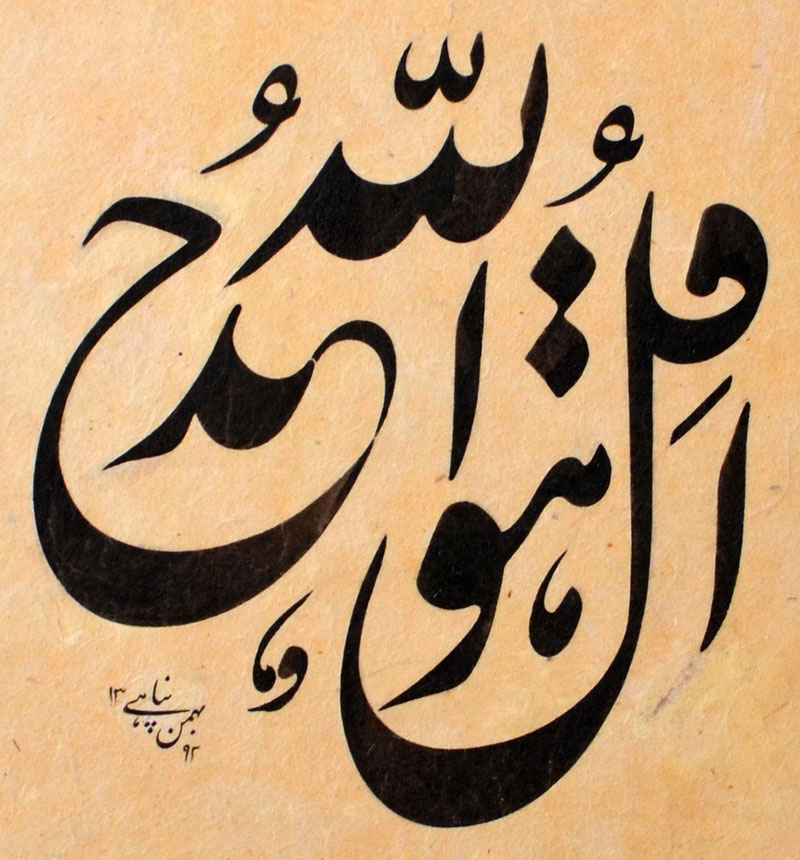 قل هو الله احد
بهمن پناهی ۱۳۹۲